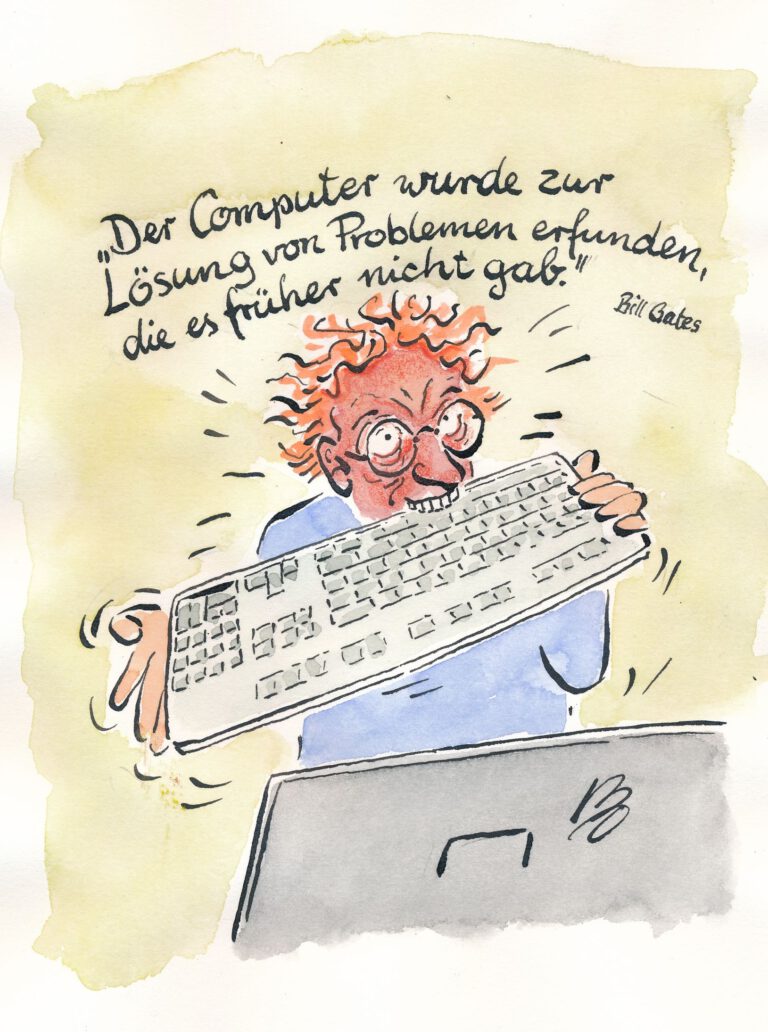 „Der Computer wurde zur
Lösung von Problemen erfunden,
die es früher nicht gab."
Bill Gates